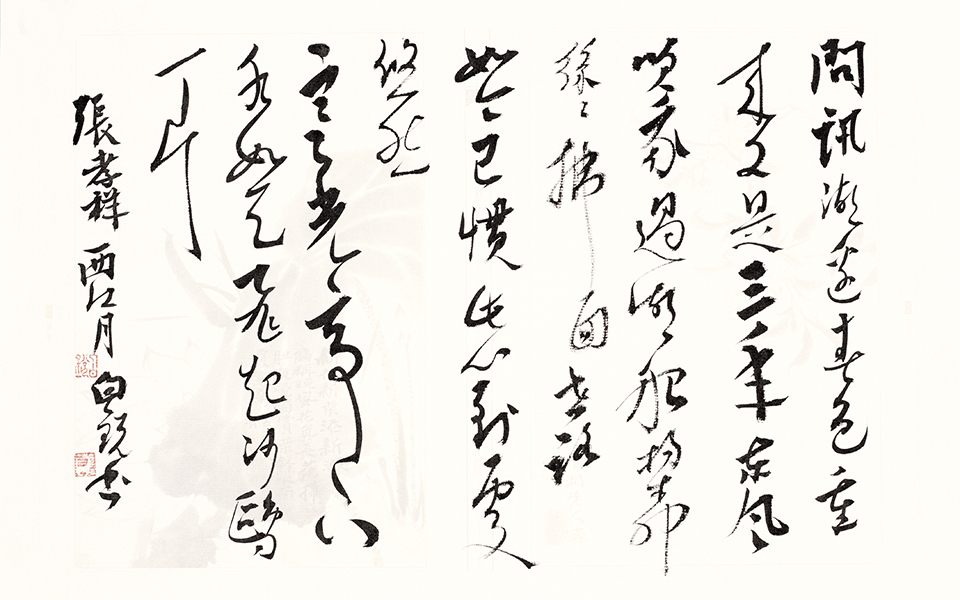 問訊湖邊春色重
來又是三年東風
吹我過湖船楊柳
絲〻拂面世路
如今已慣此心到處
悠然
寒光亭下
水如天飛起沙鷗
一片
張孝祥 西江月 白銳書